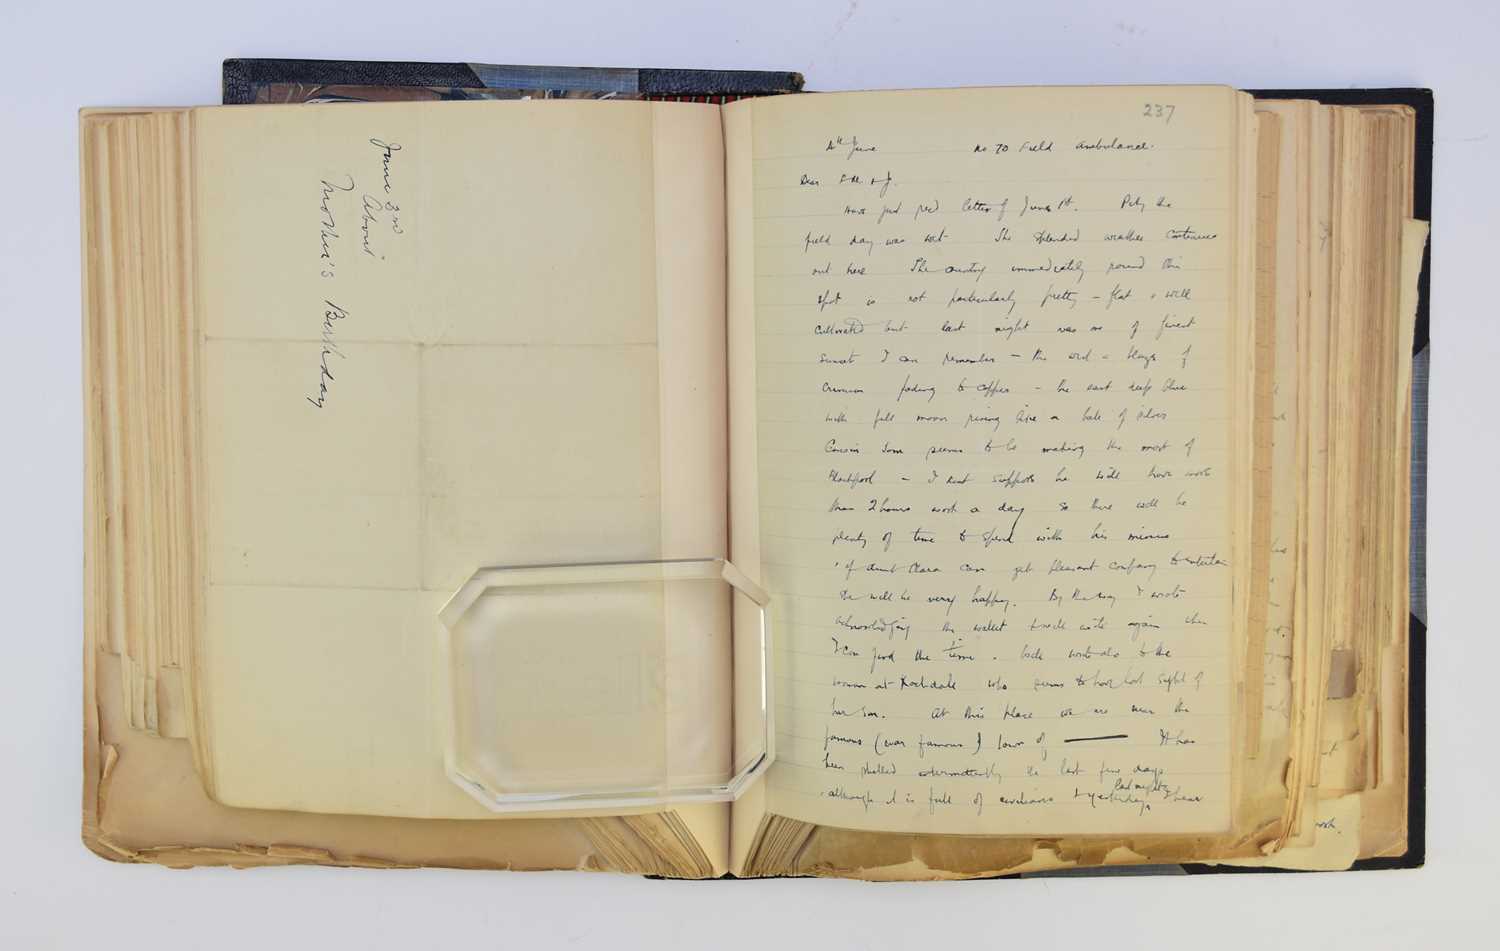 June 3rd
About
Mother's Birthday
237
4th June No 70 Field Ambulance.
Dear
Have just recd letter of June 1st. Pity the
field day was wet The splendid weather continues
out here The country immediately round this
spot is not particularly pretty – flat & well
cultivated but last night was one of finest
sunset I can remember – the west a blaze of
crimson fading to copper – the east deep blue
with full moon rising like a ball of silver
Cousin Tom seems to be making the most of
Blackpool – I dont suppose he will have more
than 2 hours work a day so there will be
plenty of time to spend with his
if Aunt Clara can get pleasant company to entertain
she will be very happy. By the way I wrote
acknowledging the wallet & will write again when
I can find the time. wrote also to the
woman at Rochdale who seems to have lost sight of
her son. At this place we are near the
famous (war famous) town of —— It has
been shelled intermittently the last few days
although it is full of civilians & yesterday last night I hear
work.